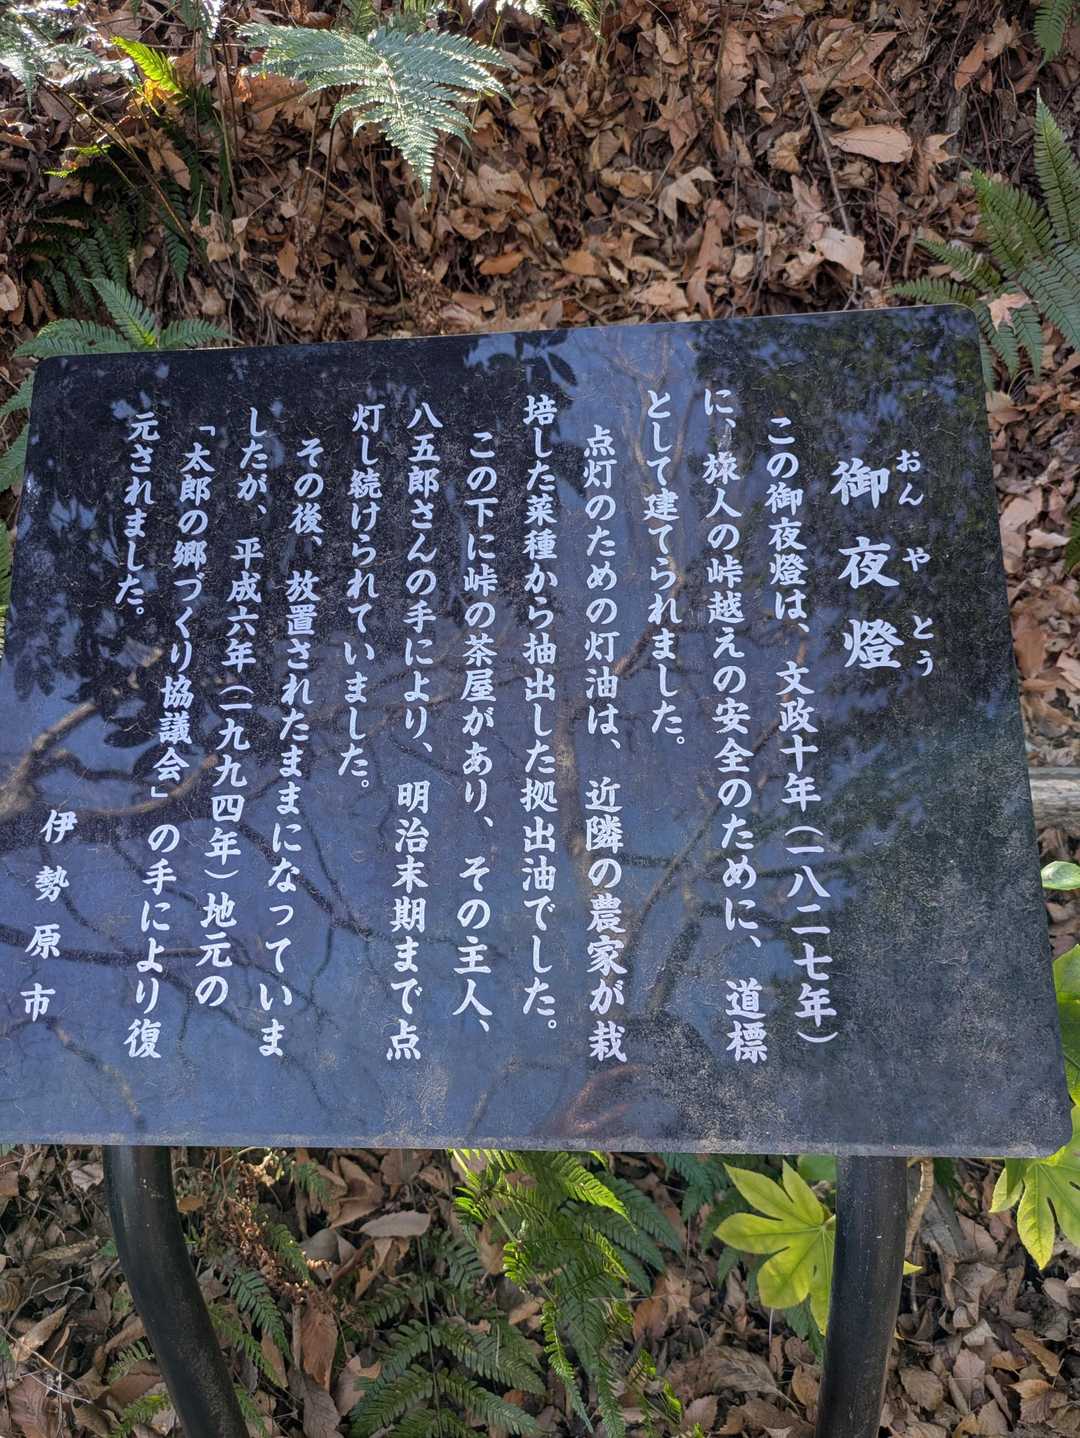 御夜燈
おんやとう
この御夜燈は、文政十年(一八二七年)
に、旅人の峠越えの安全のために、道標
として建てられました。
点灯のための灯油は、近隣の農家が栽
培した菜種から抽出した拠出油でした。
この下に峠の茶屋があり、その主人、
八五郎さんの手により、明治末期まで点
灯し続けられていました。
その後、放置されたままになっていま
したが、平成六年(一九九四年)地元の
「太郎の郷づくり協議会」の手により復
元されました。
伊勢原市